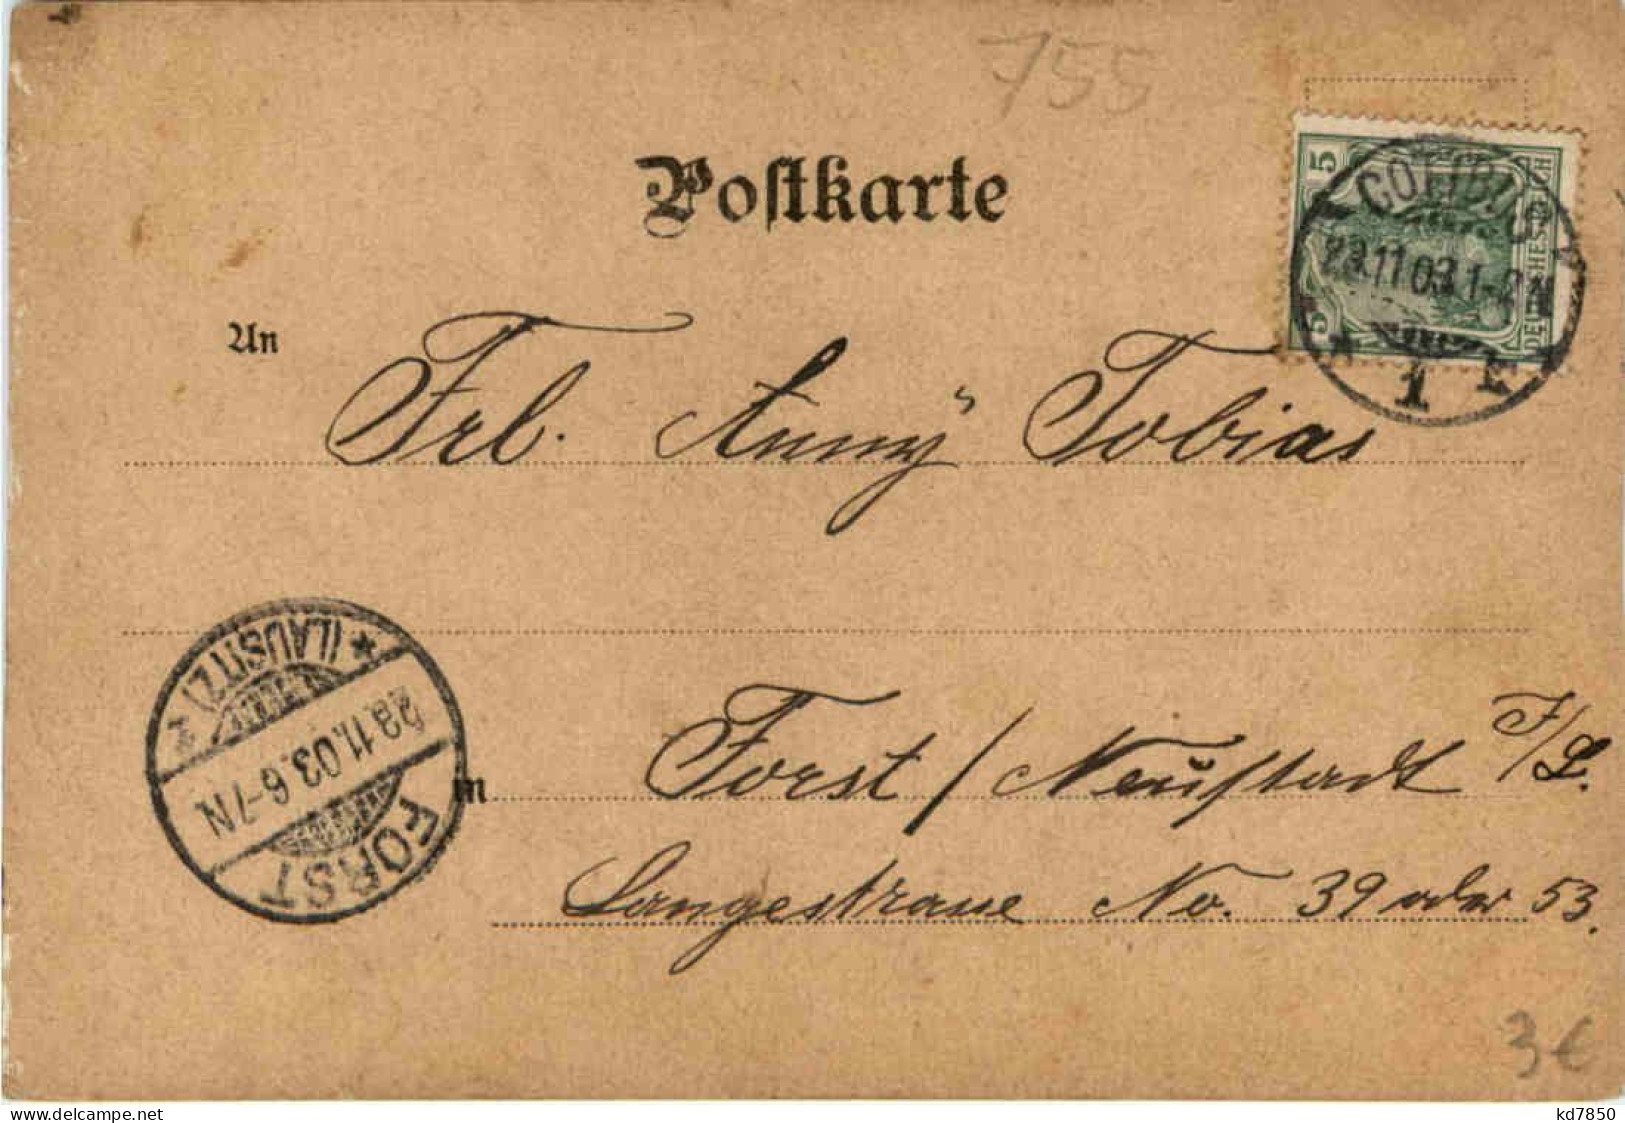 755
Postkarte
5
5
DEUTSCHES REICH
COTTBUS
23.11.03.1-2N
1
An
Frl. Anny Tobias
(LAUSITZ)
23.11.03.6-7N
FORST
in Forst / Neustadt
Langestrasse No. 39 oder 53.
3€
kd7850